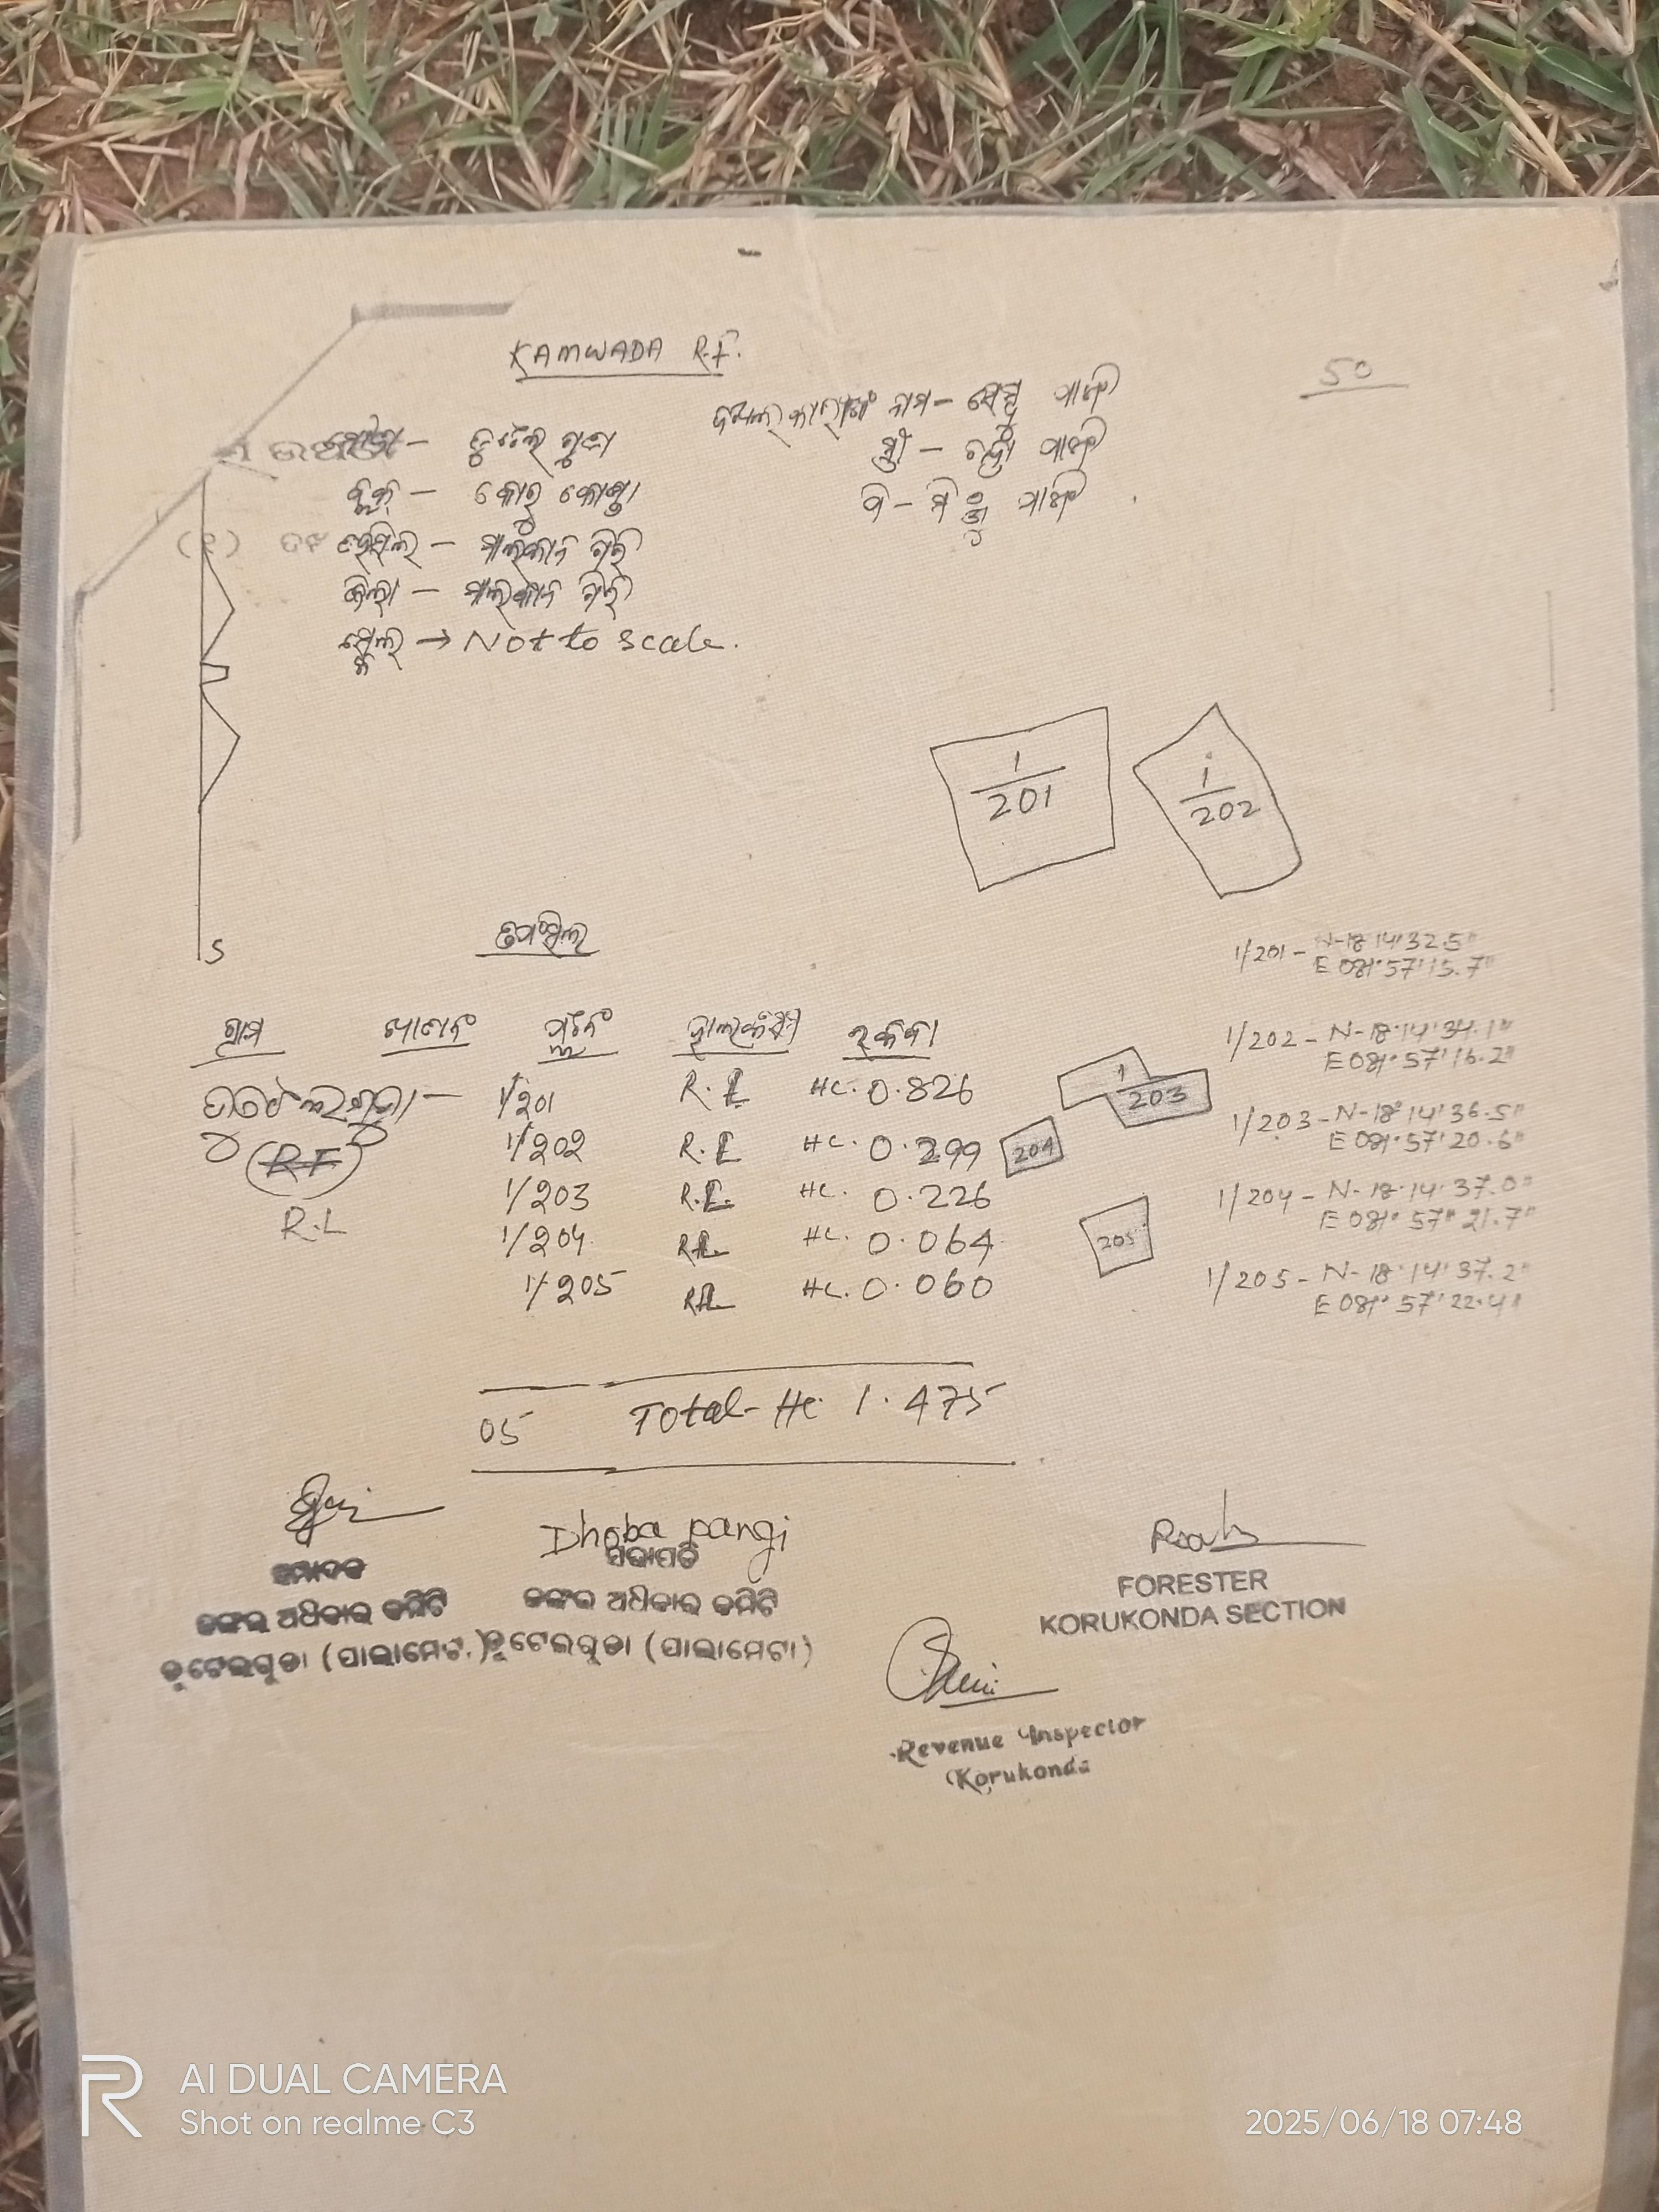 KAMWADA R.F.
50
ଦଖଲକାରୀଙ୍କ ନାମ -
ସ୍ତ୍ରୀ -
ବ୍ଲକ୍ - କୋରୁକୋଣ୍ଡା
ତହସିଲ - ମାଲକାନଗିରି
ଜିଲ୍ଲା - ମାଲକାନଗିରି
ସ୍କେଲ → Not to scale.
1/201
1/202
S
ତପସିଲ
1/201 - N-18°14'32.5"
E 081°57'15.7"
1/202 - N-18°14'34.1"
E 081°57'16.2"
1/203 - N-18°14'36.5"
E 081°57'20.6"
1/204 - N-18°14'37.0"
E 081°57'21.7"
1/205 - N-18°14'37.2"
E 081°57'22.4"
1/203
204
205
ଗ୍ରାମ ଖାତା ନଂ ପ୍ଲଟ ନଂ ହାଲ କିସମ ରକବା
1/201 R.L HC. 0.826
1/202 R.L HC. 0.299
R.L
1/203 R.L. HC. 0.226
1/204 R.L HC. 0.064
1/205 R.L HC. 0.060
05 Total - Hc 1.475
Dhoba pangi
ସଭାପତି
ଜଙ୍ଗଲ ଅଧିକାର କମିଟି
ଡୁଟେଲଗୁଡା (ପାଲାମେଟା)
ଜଙ୍ଗଲ ଅଧିକାର କମିଟି
ଡୁଟେଲଗୁଡା (ପାଲାମେଟା)
FORESTER
KORUKONDA SECTION
Revenue Inspector
Korukonda
AI DUAL CAMERA
Shot on realme C3
2025/06/18 07:48